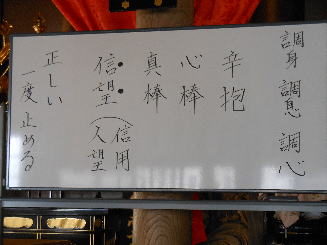 調身 調息 調心
辛抱
心棒
真棒
信望(信用
人望
正しい
一度 止める